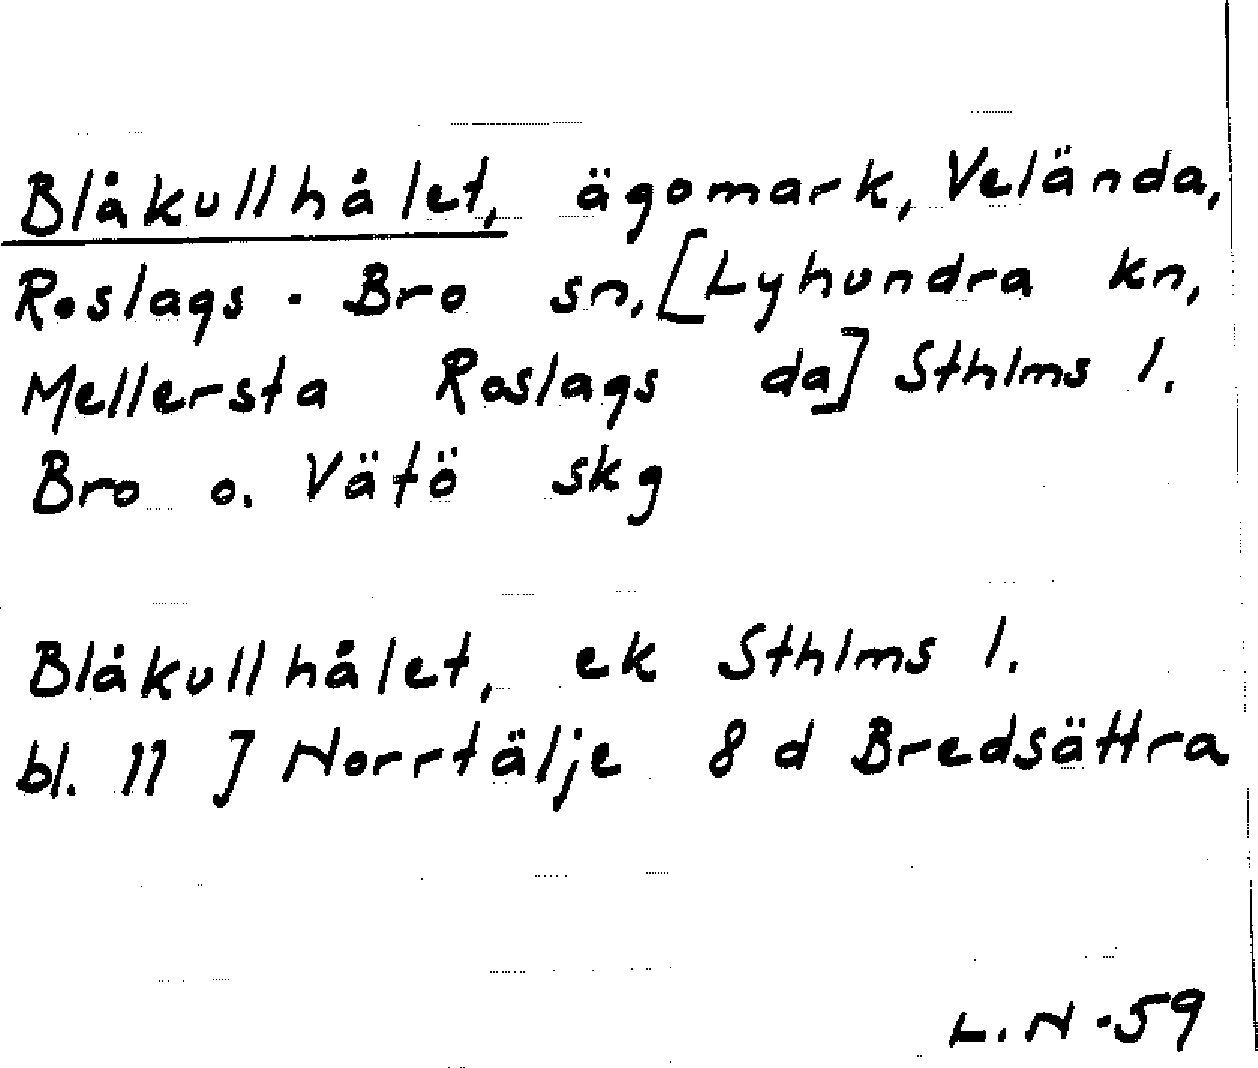 Blåkullhålet, ägomark, Velända,
Roslags-Bro sn, [Lyhundra kn,
Mellersta Roslags da] Sthlms l.
Bro o. Vätö skg
Blåkullhålet, ek Sthlms l.
bl. 11 J Norrtälje 8 d Bredsättra
L.N -59